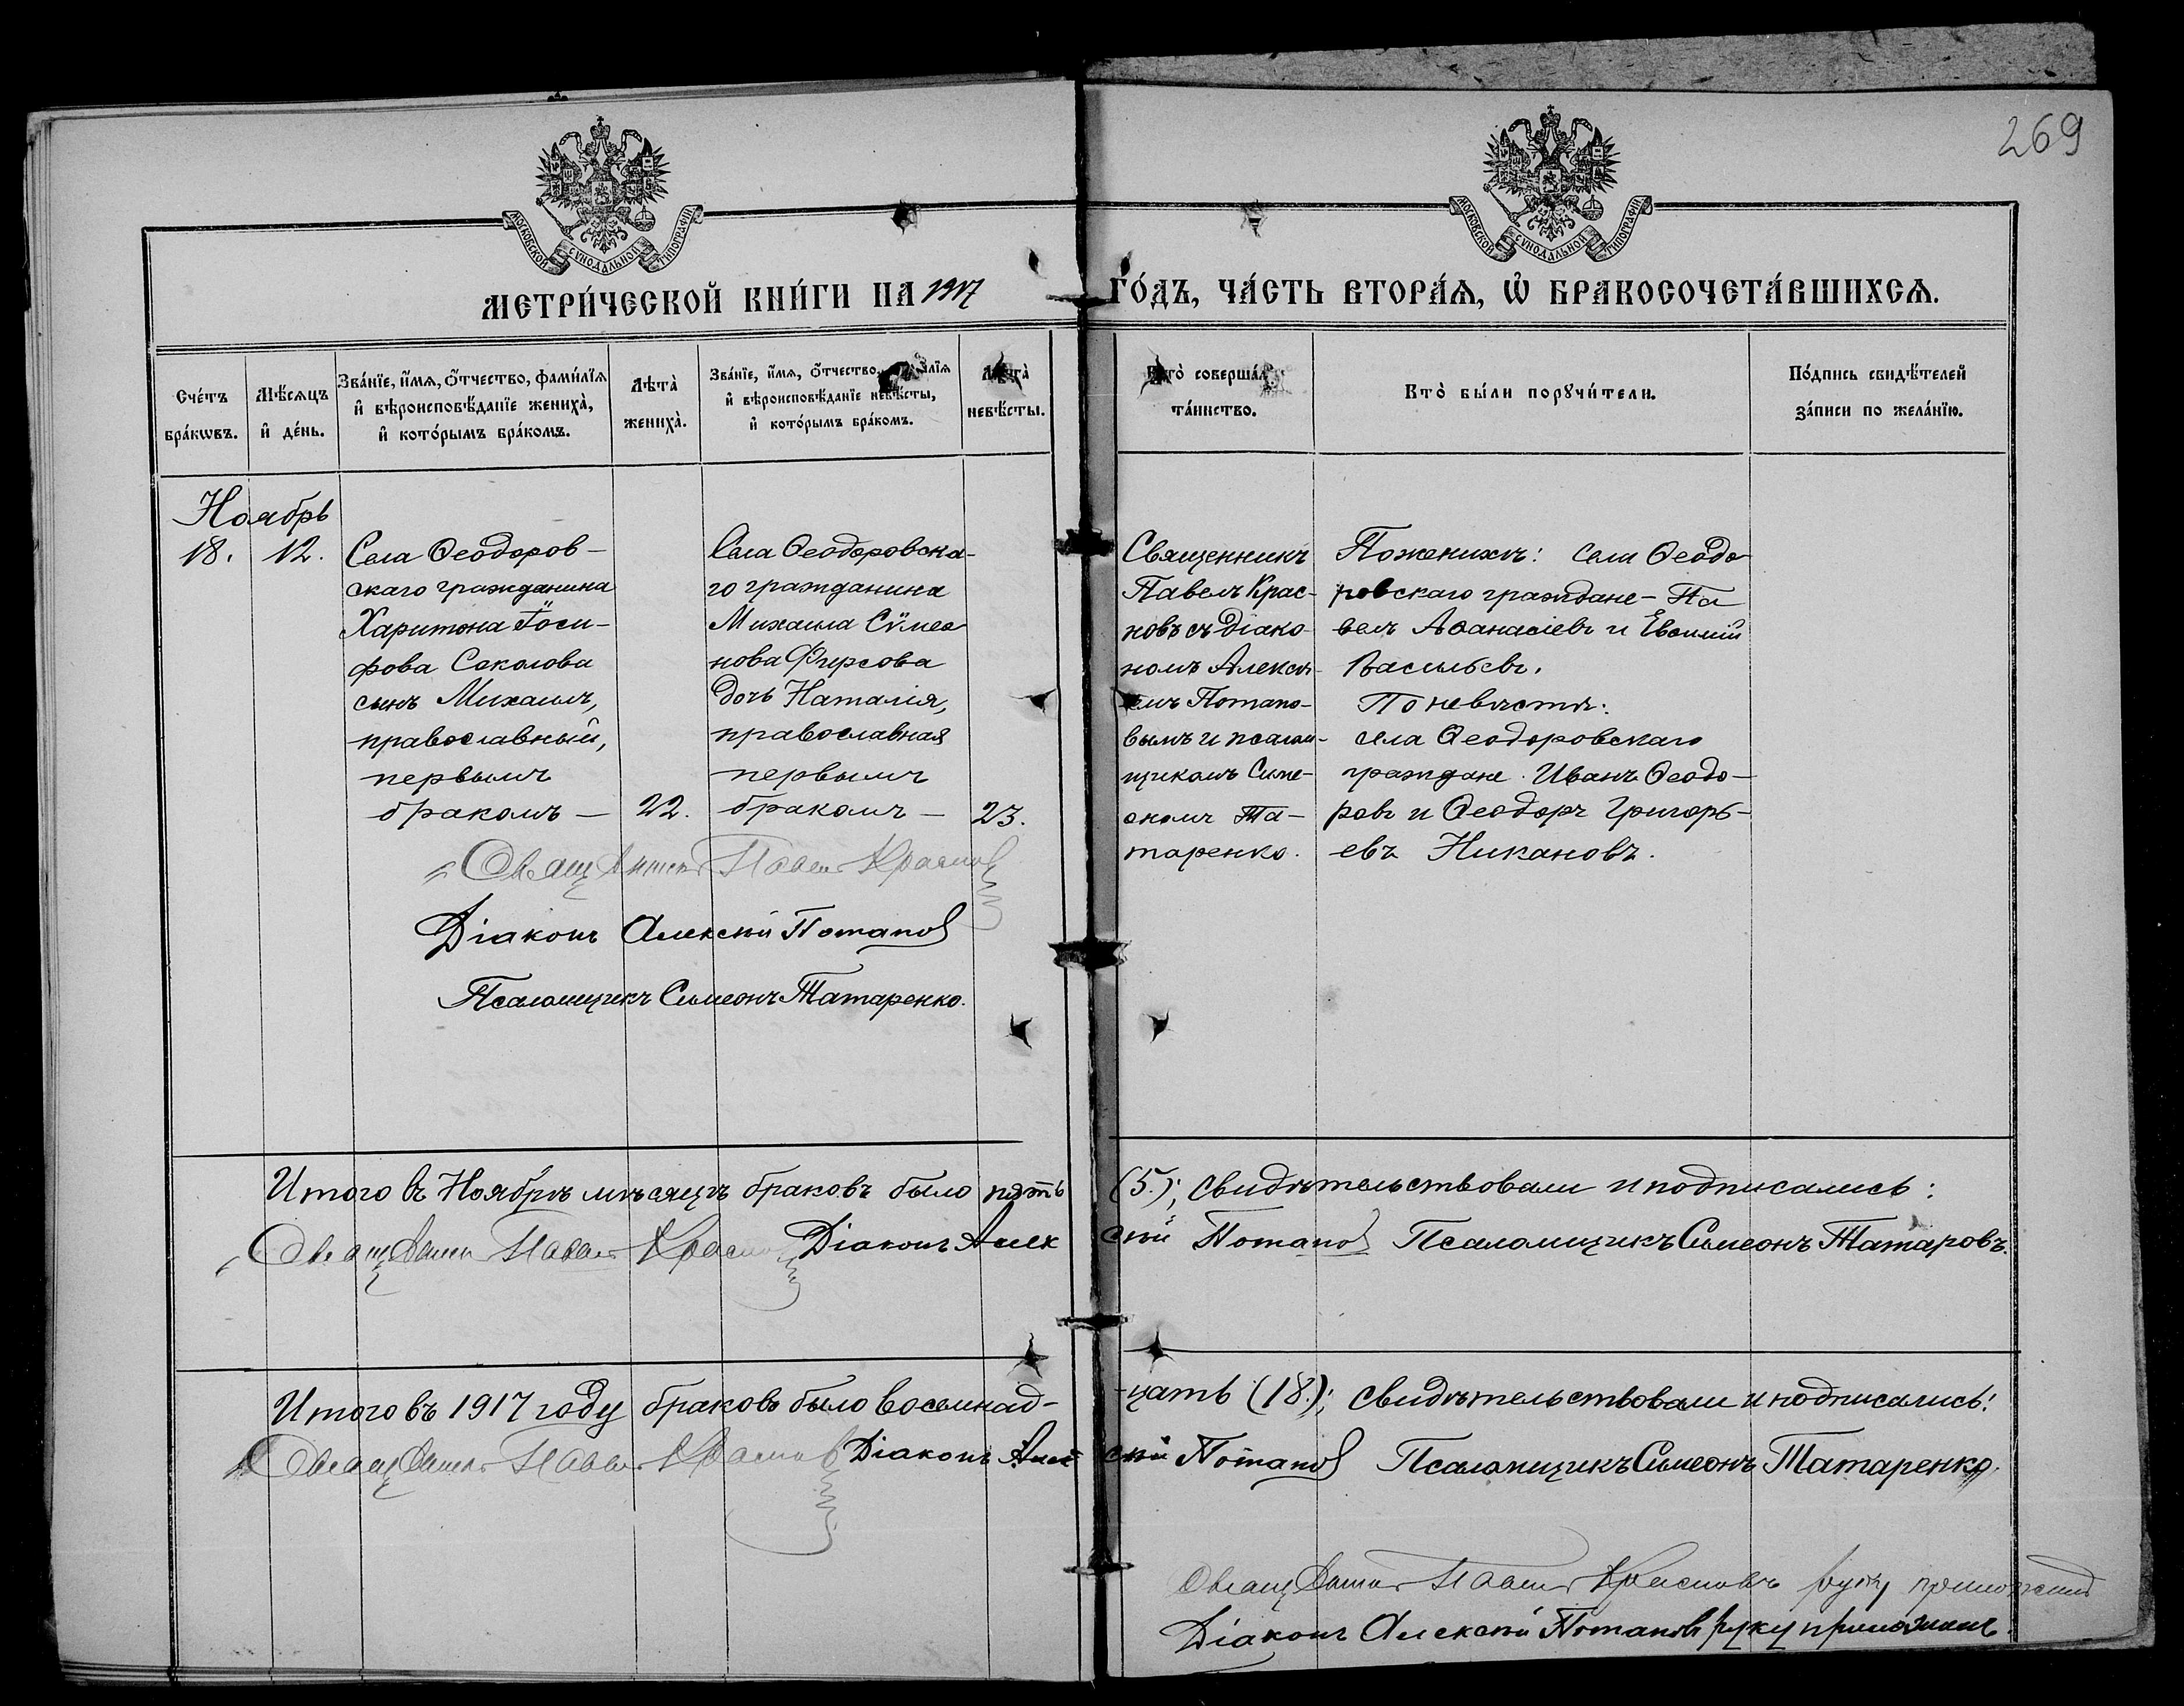 269
МОСКОВСКОЙ СѴНОДАЛЬНОЙ ТИПОГРАФІИ
МОСКОВСКОЙ СѴНОДАЛЬНОЙ ТИПОГРАФІИ
МЕТРИ́ЧЕСКОЙ КНИ́ГИ НА 1917
ГО́ДЪ, ЧА́СТЬ ВТОРА́Ѧ, Ѡ҆ БРАКОСОЧЕТА́ВШИХСѦ.
Сче́тъ
бра́кѡвъ.
Мѣ́сѧцъ
и҆ де́нь.
Зва́нїе, и҆́мѧ, ѻ҆́тчество, фами́лїѧ
и҆ вѣроисповѣ́данїе жениха̀,
и҆ кото́рымъ бра́комъ.
Лѣта̀
жениха̀.
Зва́нїе, и҆́мѧ, ѻ҆́тчество, фами́лїѧ
и҆ вѣроисповѣ́данїе невѣ́сты,
и҆ кото́рымъ бра́комъ.
Лѣта̀
невѣ́сты.
Кто̀ соверша́лъ
та́инство.
Кто̀ бы́ли порꙋчи́тели.
По́дпись свидѣ́телей
за́писи по жела́нїю.
Ноябрь
18.
12.
Села Ѳеодоров-
скаго гражданина
Харитона Іоси-
фова Соколова
сынъ Михаилъ,
православный,
первымъ
бракомъ —
22.
Села Ѳеодоровска-
го гражданина
Михаила Сѵмео
нова Фирсова
дочь Наталія,
православная
первымъ
бракомъ —
23.
Священникъ
Павелъ Крас-
новъ съ діако-
номъ Алексѣ-
емъ Потапо-
вымъ и псалом-
щикомъ Симе-
ономъ Та-
таренко.
По женихѣ: села Ѳеодо
ровскаго граждане — Па
велъ Аѳанасіевъ и Евѳимій
Васильевъ.
По невѣстѣ:
села Ѳеодоровскаго
граждане Иванъ Ѳеодо-
ровъ и Ѳеодоръ Григорь-
евъ Никановъ.
Священникъ Павелъ Краснов
Діаконъ Алексѣй Потапов
Псаломщикъ Симеонъ Татаренко.
Итого въ Ноябрѣ мѣсяцѣ браковъ было пять
(5.); свидѣтельствовали и подписались:
Священникъ Павелъ Краснов Діаконъ Алек
сѣй Потапов Псаломщикъ Симеонъ Татаровъ.
Итого въ 1917 году браковъ было восемнад-
цать (18.); свидѣтельствовали и подписались:
Священникъ Павелъ Краснов Діаконъ Алек
сѣй Потапов Псаломщикъ Симеонъ Татаренко.
Священникъ Павелъ Красновъ руку приложилъ
Діаконъ Алексѣй Потаповъ руку приложилъ.